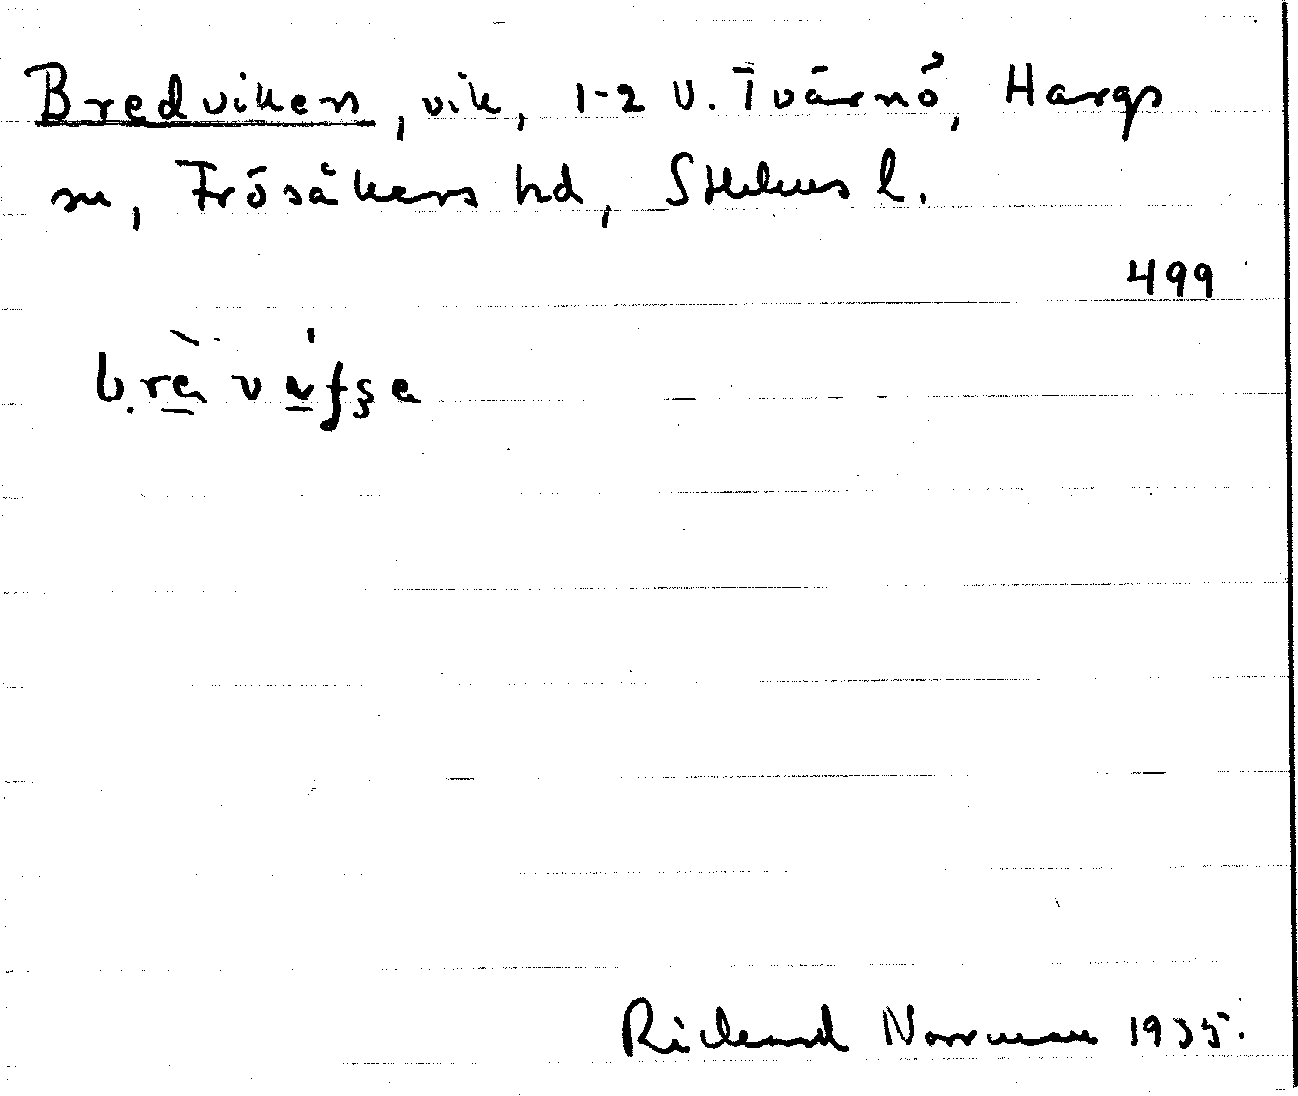 Bredviken, vik, 1-2 V. Tvärnö, Hargs
sn, Frösåkers hd, Sthlms l.
499
Rickard Norrman 1935.